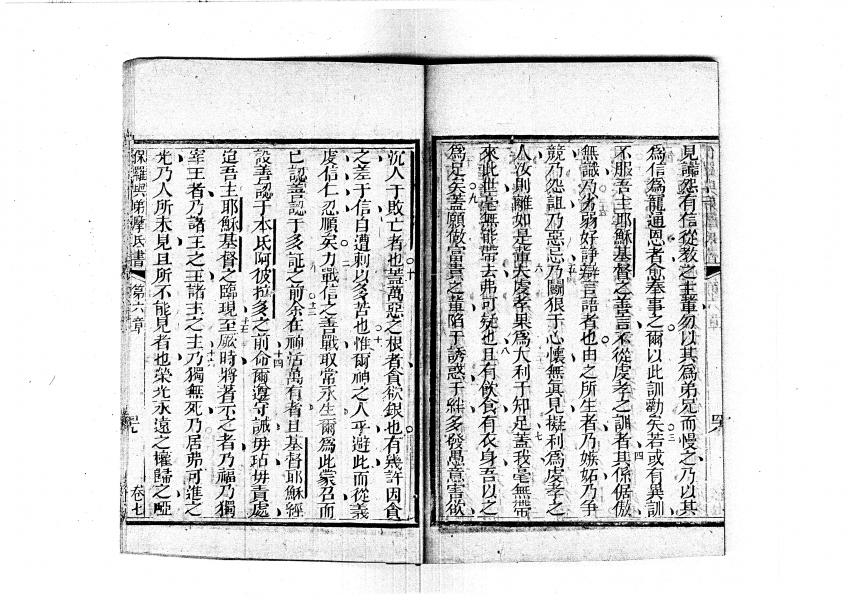 見讟怨有信從教之主輩勿以其為弟兄而慢之乃以其
為信為寵通恩者愈奉事之爾以此訓勸矣若或有異訓
不服吾主耶穌基督之善言不從虔孝之訓者其係倨傲
無識乃劣弱好諍辯言語者也由之所生者乃嫉妬乃爭
競乃怨詛乃惡忌乃鬬狠于心懷無真見擬利為虔孝之
人汝則離如是輩夫虔孝果為大利于知足蓋我毫無帶
來此世毫無能帶去弗可疑也且有飲食有衣身吾以之
為足矣蓋願做富貴之輩陷于誘惑于絆多發愚意害欲
沉人于敗亡者也蓋萬惡之根者貪欲銀也有幾許因貪
之差于信自遭刺以多苦也惟爾神之人乎避此而從義
虔信仁忍順矣力戰信之善戰取常永生爾為此蒙召而
已認善認于多証之前余在神活萬有者且基督耶穌經
設善認于本氐阿彼拉多之前命爾遵守誡毋玷毋責處
迨吾主耶穌基督之臨現至厥時將著示之者乃福乃獨
宰王者乃諸王之王諸主之主乃獨無死乃居弗可進之
光乃人所未見且所不能見者也榮光永遠之權歸之啞
保羅與弟摩氐書 第六章 卷七